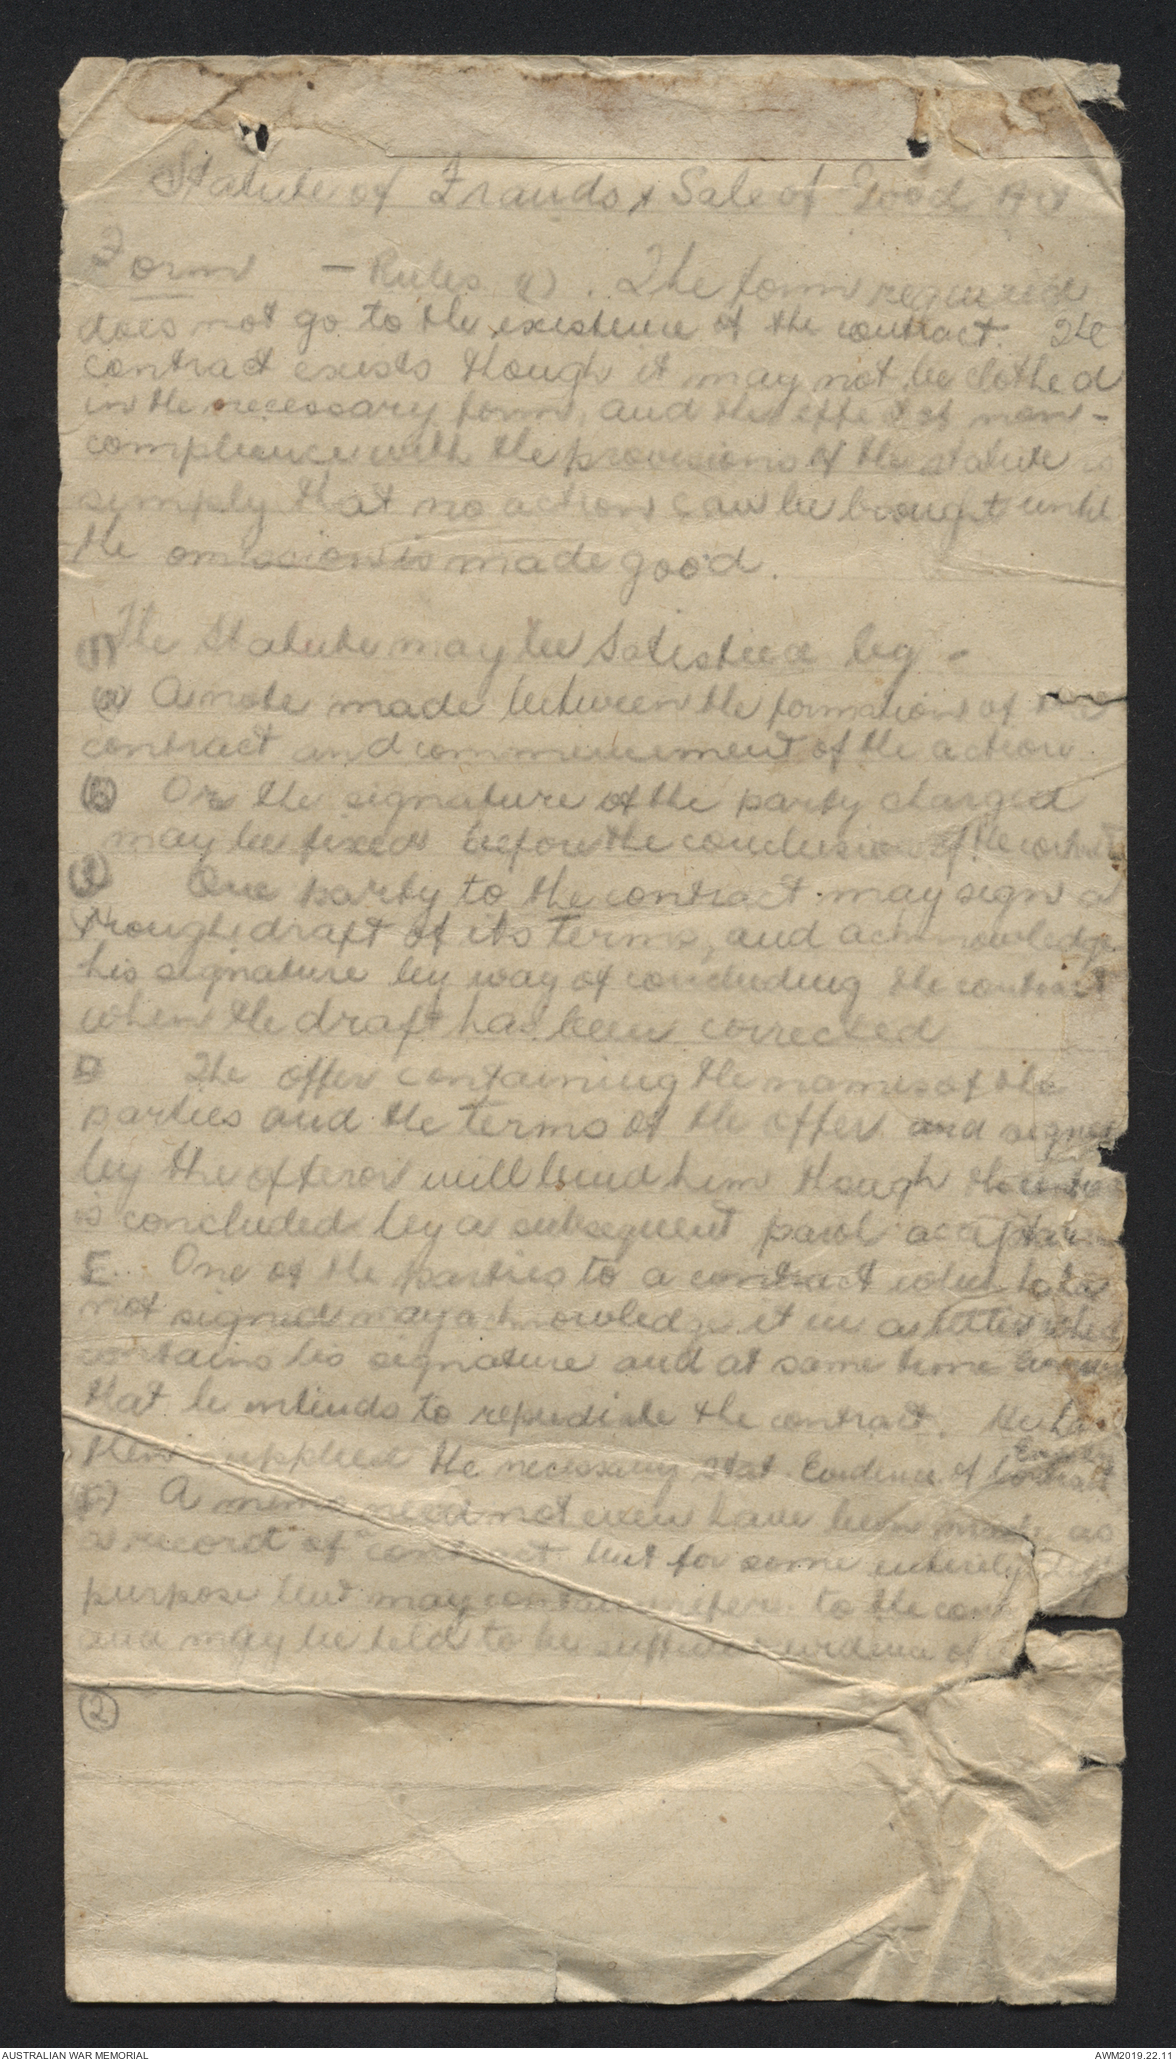 Statute of Frauds & Sale of Good Act
Form — Rules (1). The form required
does not go to the existence of the contract. The
contract exists though it may not be clothed
in the necessary form, and the effect of non-
complience with the provisions of the statute is
simply that no action can be brought until
the omission is made good.
(1) The Statute may be Satisfied by -
(a) A note made between the formation of the
contract and commencement of the action.
(B) Or the signature of the party charged
may be fixed before the conclusion of the contract
One party to the contract may sign a
rough draft of its terms, and acknowledge
his signature by way of concluding the contract
when the draft has been corrected
D The offer containing the names of the
parties and the terms of the offer and signed
by the offeror will bind him though the
is concluded by a subsequent parol acceptance
E. One of the parties to a contract which
not signed may acknowledge it in a letter which
contains his signature and at same time
that he intends to repudiate the contract. He has
then supplied the necessary stat. Evidence of Contract
(F) A memo need not even have been made as
a record of contract but for some entirely
purpose but may contain refere. to the
and may be held to be evidence of
(2)
AUSTRALIAN WAR MEMORIAL
AWM2019.22.11